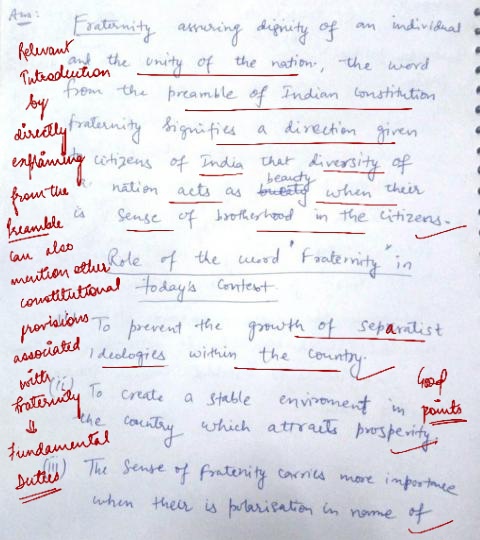 Ans:
Fraternity assuring dignity of an individual
and the unity of the nation, the word
from the preamble of Indian constitution
fraternity signifies a direction given
citizens of India that diversity of
nation acts as beauty when their
is sense of brotherhood in the citizens.
Role of the word "Fraternity" in
today's context
To prevent the growth of separatist
ideologies within the country.
(ii) To create a stable enviroment in
the country which attracts prosperity
(iii) The sense of fraternity carries more importance
when their is polarisation in name of
Relevant
Introduction
by
directly
explaining
from the
Preamble
can also
mention other
constitutional
provisions
associated
with
fraternity
⇓
Fundamental
Duties
Good
points